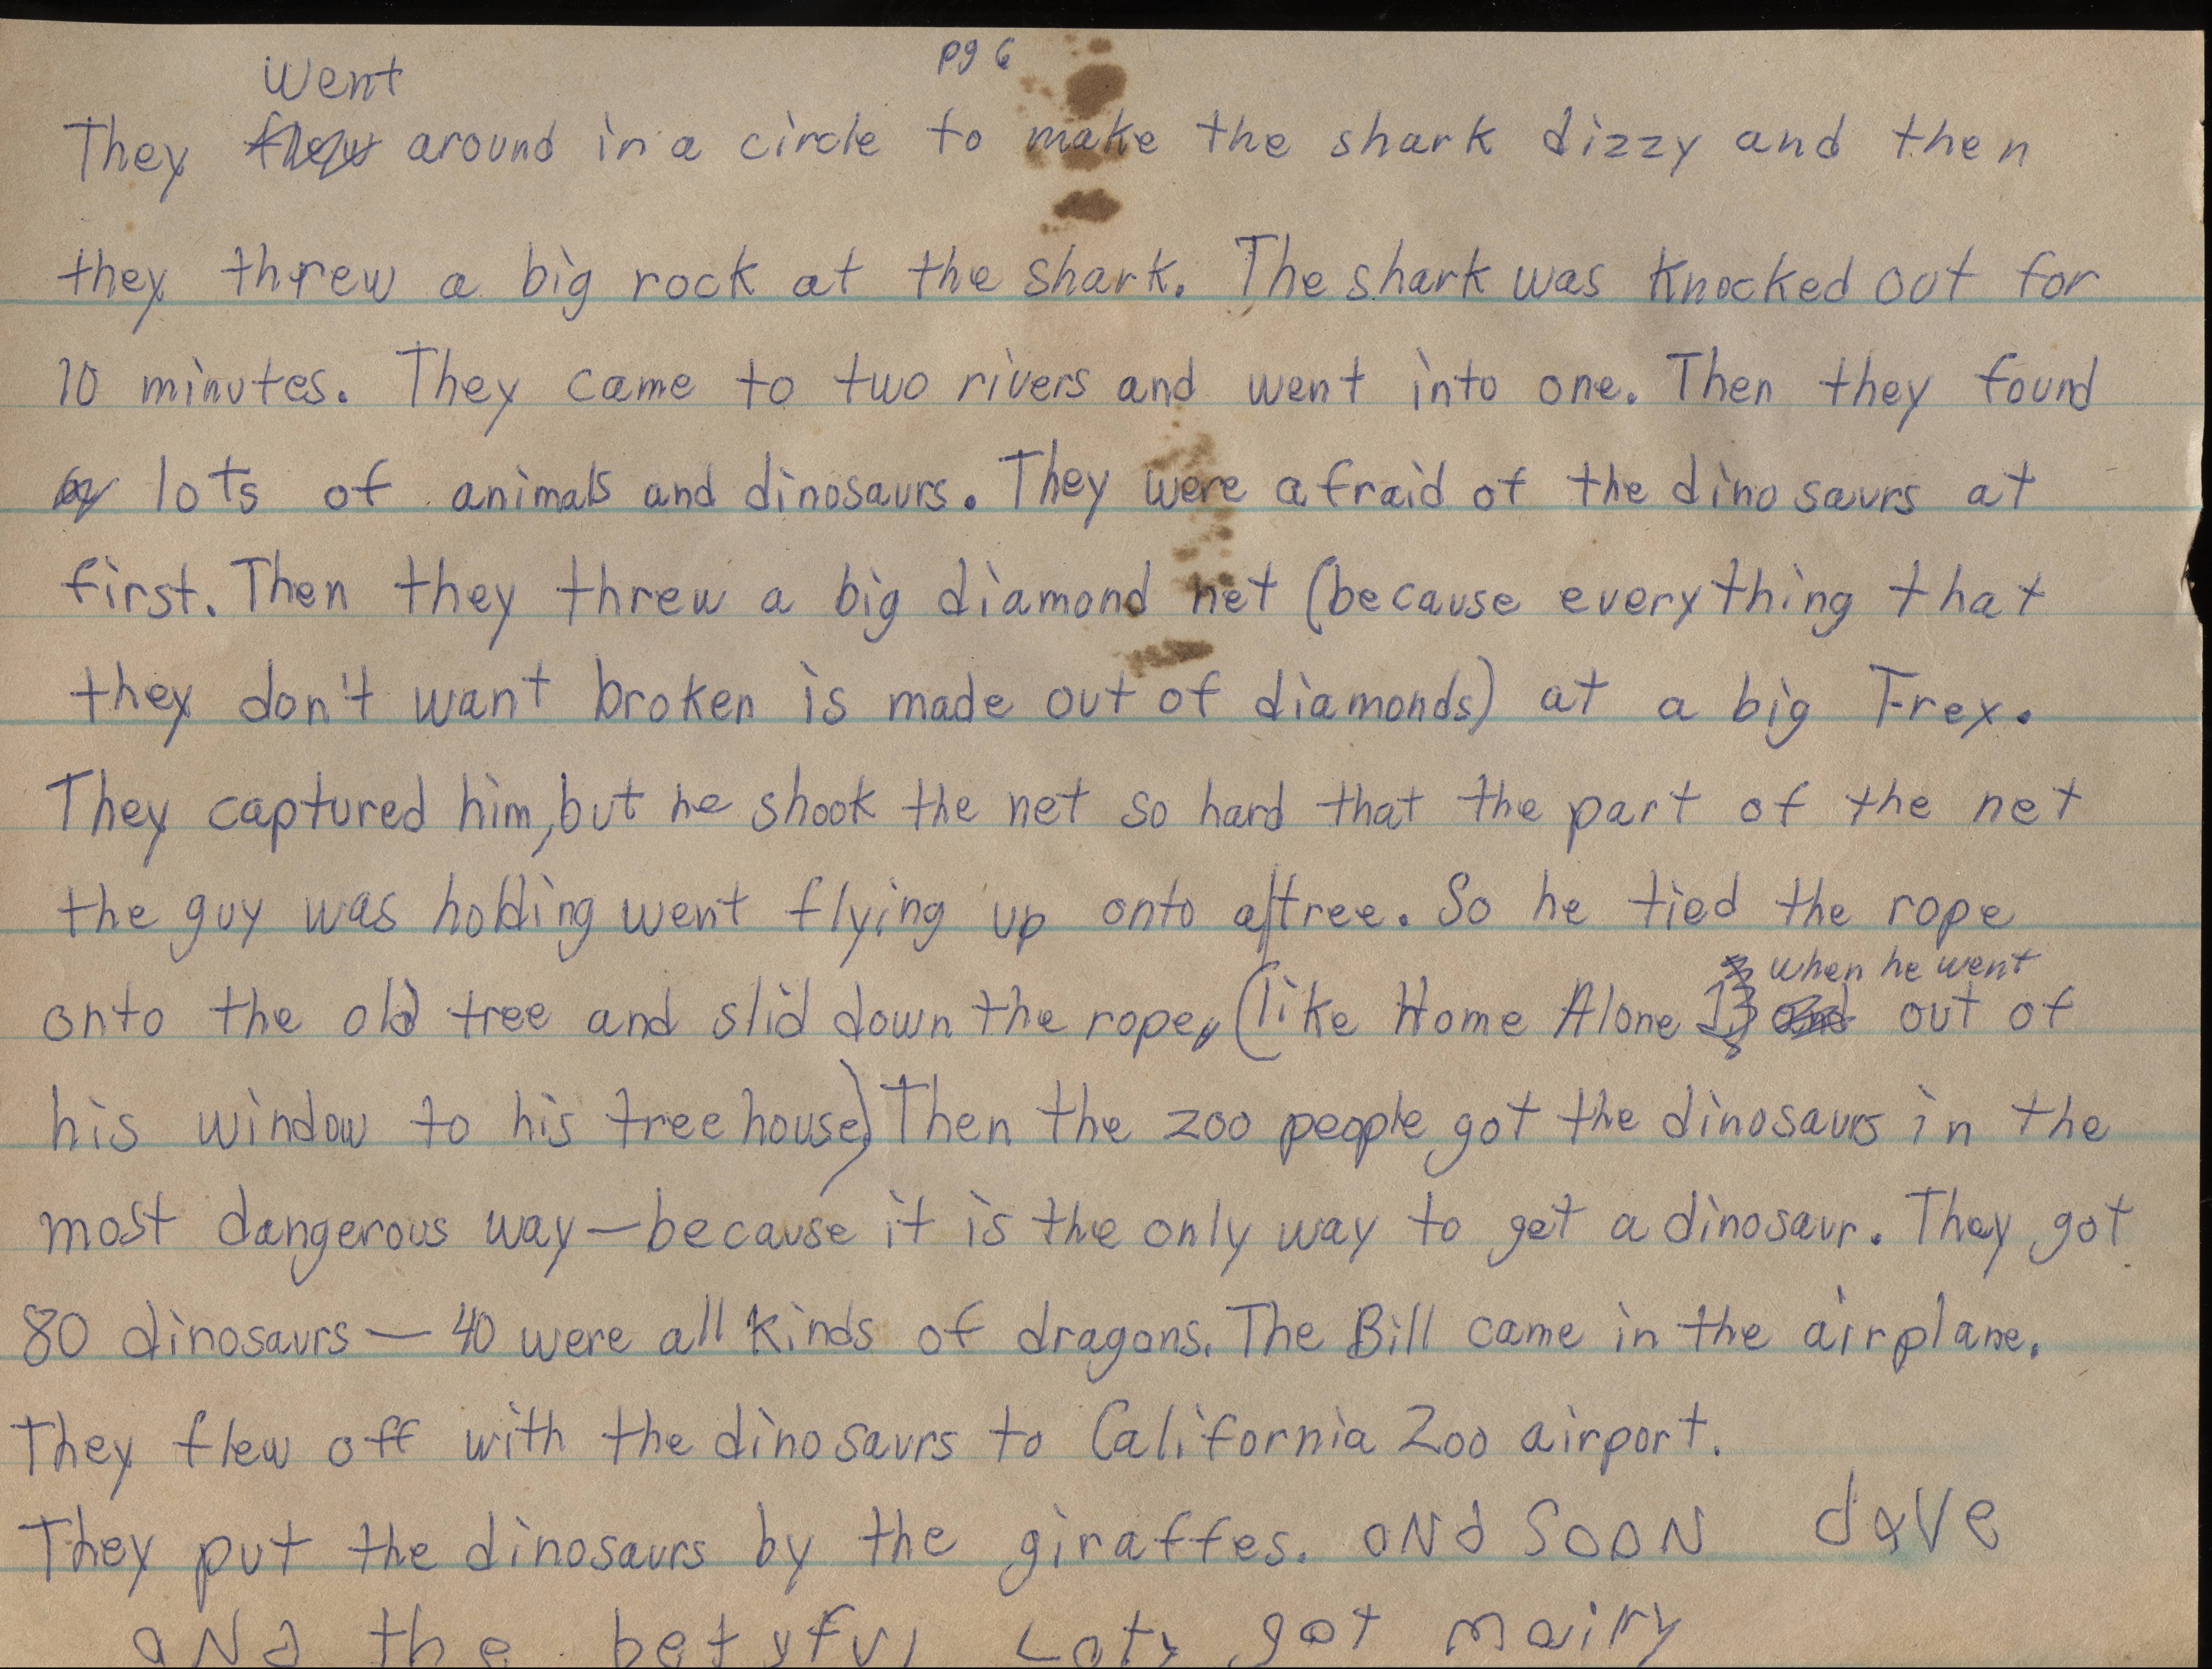 pg 6
went
They flew around in a circle to make the shark dizzy and then
they threw a big rock at the shark. The shark was knocked out for
10 minutes. They came to two rivers and went into one. Then they found
lots of animals and dinosaurs. They were afraid of the dinosaurs at
first. Then they threw a big diamond net (because everything that
they don't want broken is made out of diamonds) at a big T-rex.
They captured him, but he shook the net so hard that the part of the net
the guy was holding went flying up onto a tree. So he tied the rope
when he went
onto the old tree and slid down the rope, (like Home Alone out of
his window to his tree house) Then the zoo people got the dinosaurs in the
most dangerous way—because it is the only way to get a dinosaur. They got
80 dinosaurs — 40 were all kinds of dragons. The Bill came in the airplane.
They flew off with the dinosaurs to California Zoo airport.
They put the dinosaurs by the giraffes. aNd SooN daVe
aNd the betyful Laty got mairry